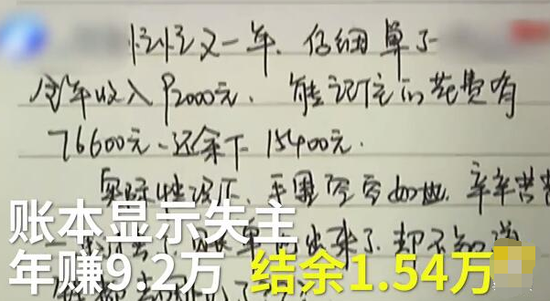 忙忙又一年、仔细算了
全年收入92000元、能记住的花费有
76600元、还余下15400元.
实际情况下、手里
辛辛苦苦
一
来了、却不知道
账本显示失主
年赚9.2万 结余1.54万